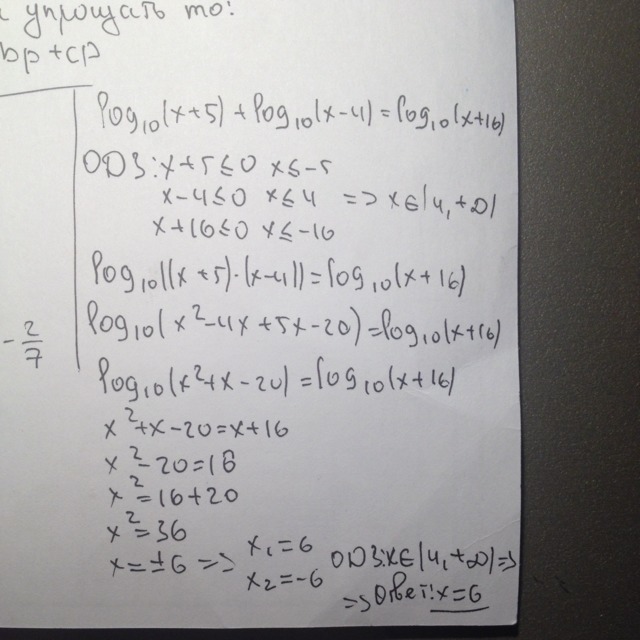 упрощать то:
bp+cp
log₁₀(x+5)+log₁₀(x-4)=log₁₀(x+16)
ОДЗ: x+5≤0 x≤-5
x-4≤0 x≤4 => x∈(4,+∞)
x+16≤0 x≤-16
log₁₀((x+5)·(x-4))=log₁₀(x+16)
-2/7
log₁₀(x²-4x+5x-20)=log₁₀(x+16)
log₁₀(x²+x-20)=log₁₀(x+16)
x²+x-20=x+16
x²-20=16
x²=16+20
x²=36
x=±6 => x₁=6 ОДЗ:x∈(4,+∞)=>
x₂=-6 => Ответ: x=6